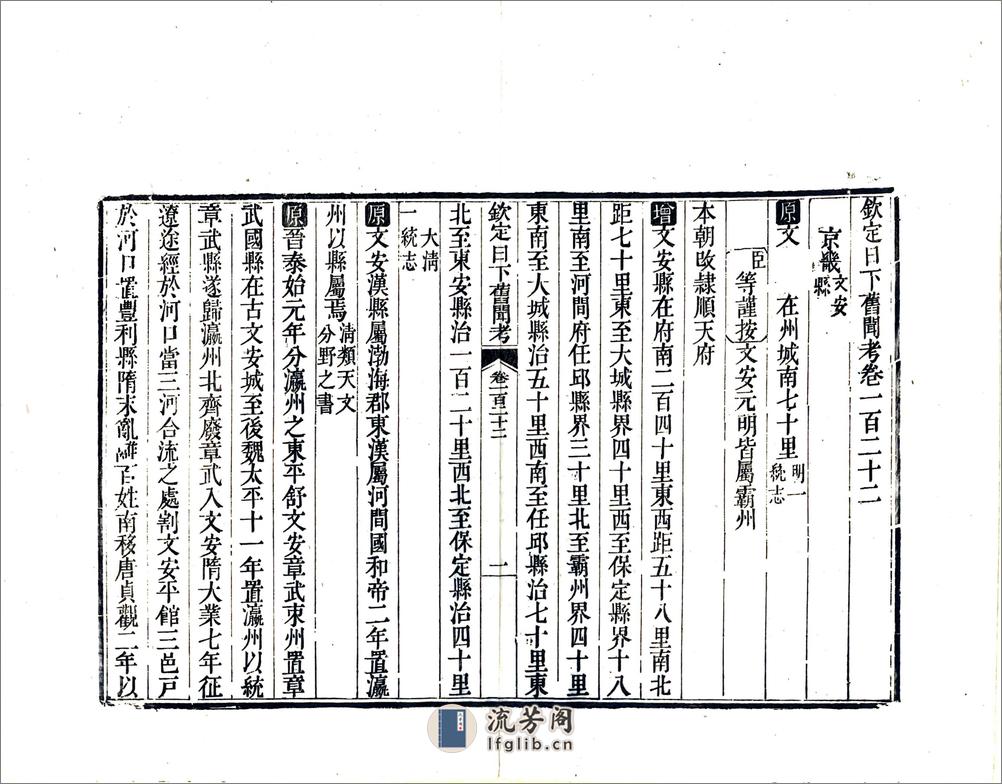 欽定日下舊聞考卷一百二十二
京畿文安縣
原文　在州城南七十里明一統志
臣等謹按文安元明皆屬霸州
本朝改隸順天府
增文安縣在府南二百四十里東西距五十八里南北
距七十里東至大城縣界四十里西至保定縣界十八
里南至河間府任邱縣界三十里北至霸州界四十里
東南至大城縣治五十里西南至任邱縣治七十里東
欽定日下舊聞考　卷一百二十二　一
北至東安縣治一百二十里西北至保定縣治四十里
大清一統志
原文安漢縣屬渤海郡東漢屬河間國和帝二年置瀛
州以縣屬焉清類天文分野之書
原晉泰始元年分瀛州之東平舒文安章武束州置章
武國縣在古文安城至後魏太平十一年置瀛州以統
章武縣遂歸瀛州北齊廢章武入文安隋大業七年征
遼途經於河口當三河合流之處割文安平館三邑戸
於河口置豐利縣隋末亂離百姓南移唐貞觀二年以
流芳阁
lfglib.cn